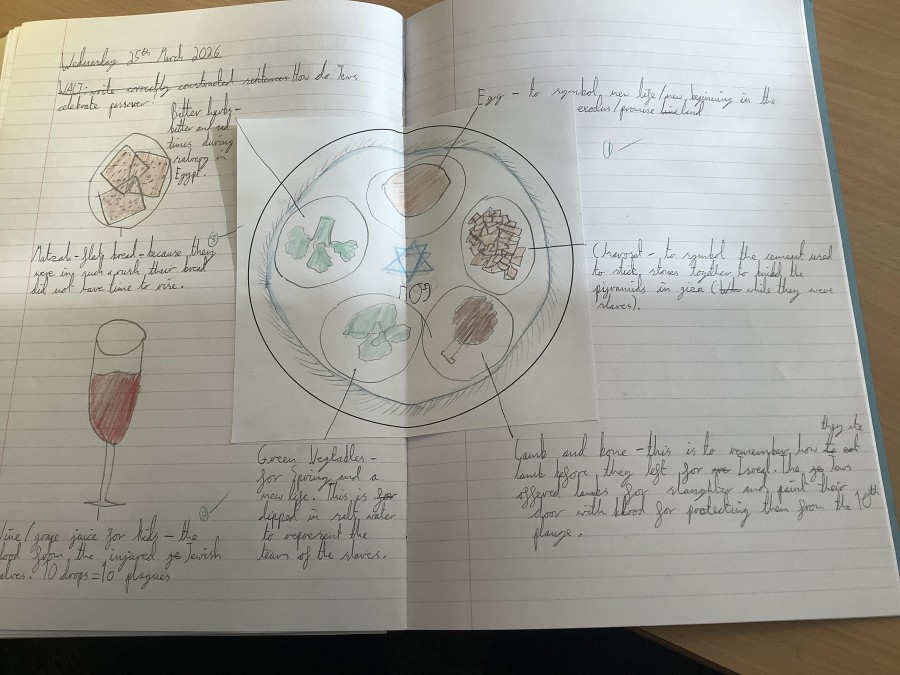 Wednesday 25th March 2026
WALT: write correctly constructed sentences How do Jews
celebrate passover.
Bitter herbs -
bitter and sad
times during
slavery in
Egypt.
Matzah - flat bread - because they
were in such a rush their bread
did not have time to rise.
Wine/grape juice for kids - the
blood from the injured Jewish
slaves. 10 drops = 10 plagues
Green Vegtables -
for Spring and a
new life. This is for
dipped in salt water
to represent the
tears of the slaves.
Egg - to symbol new life/new beginning in the
exodus/promise land
Charoset - to symbol the cement used
to stick stones together to build the
pyramids in giza ( while they were
slaves).
Lamb and bone - this is to remember how they ate
lamb before they left for Isreal. The Jews
offered lambs for slaughter and paint their
door with blood for protecting them from the 10th
plauge.